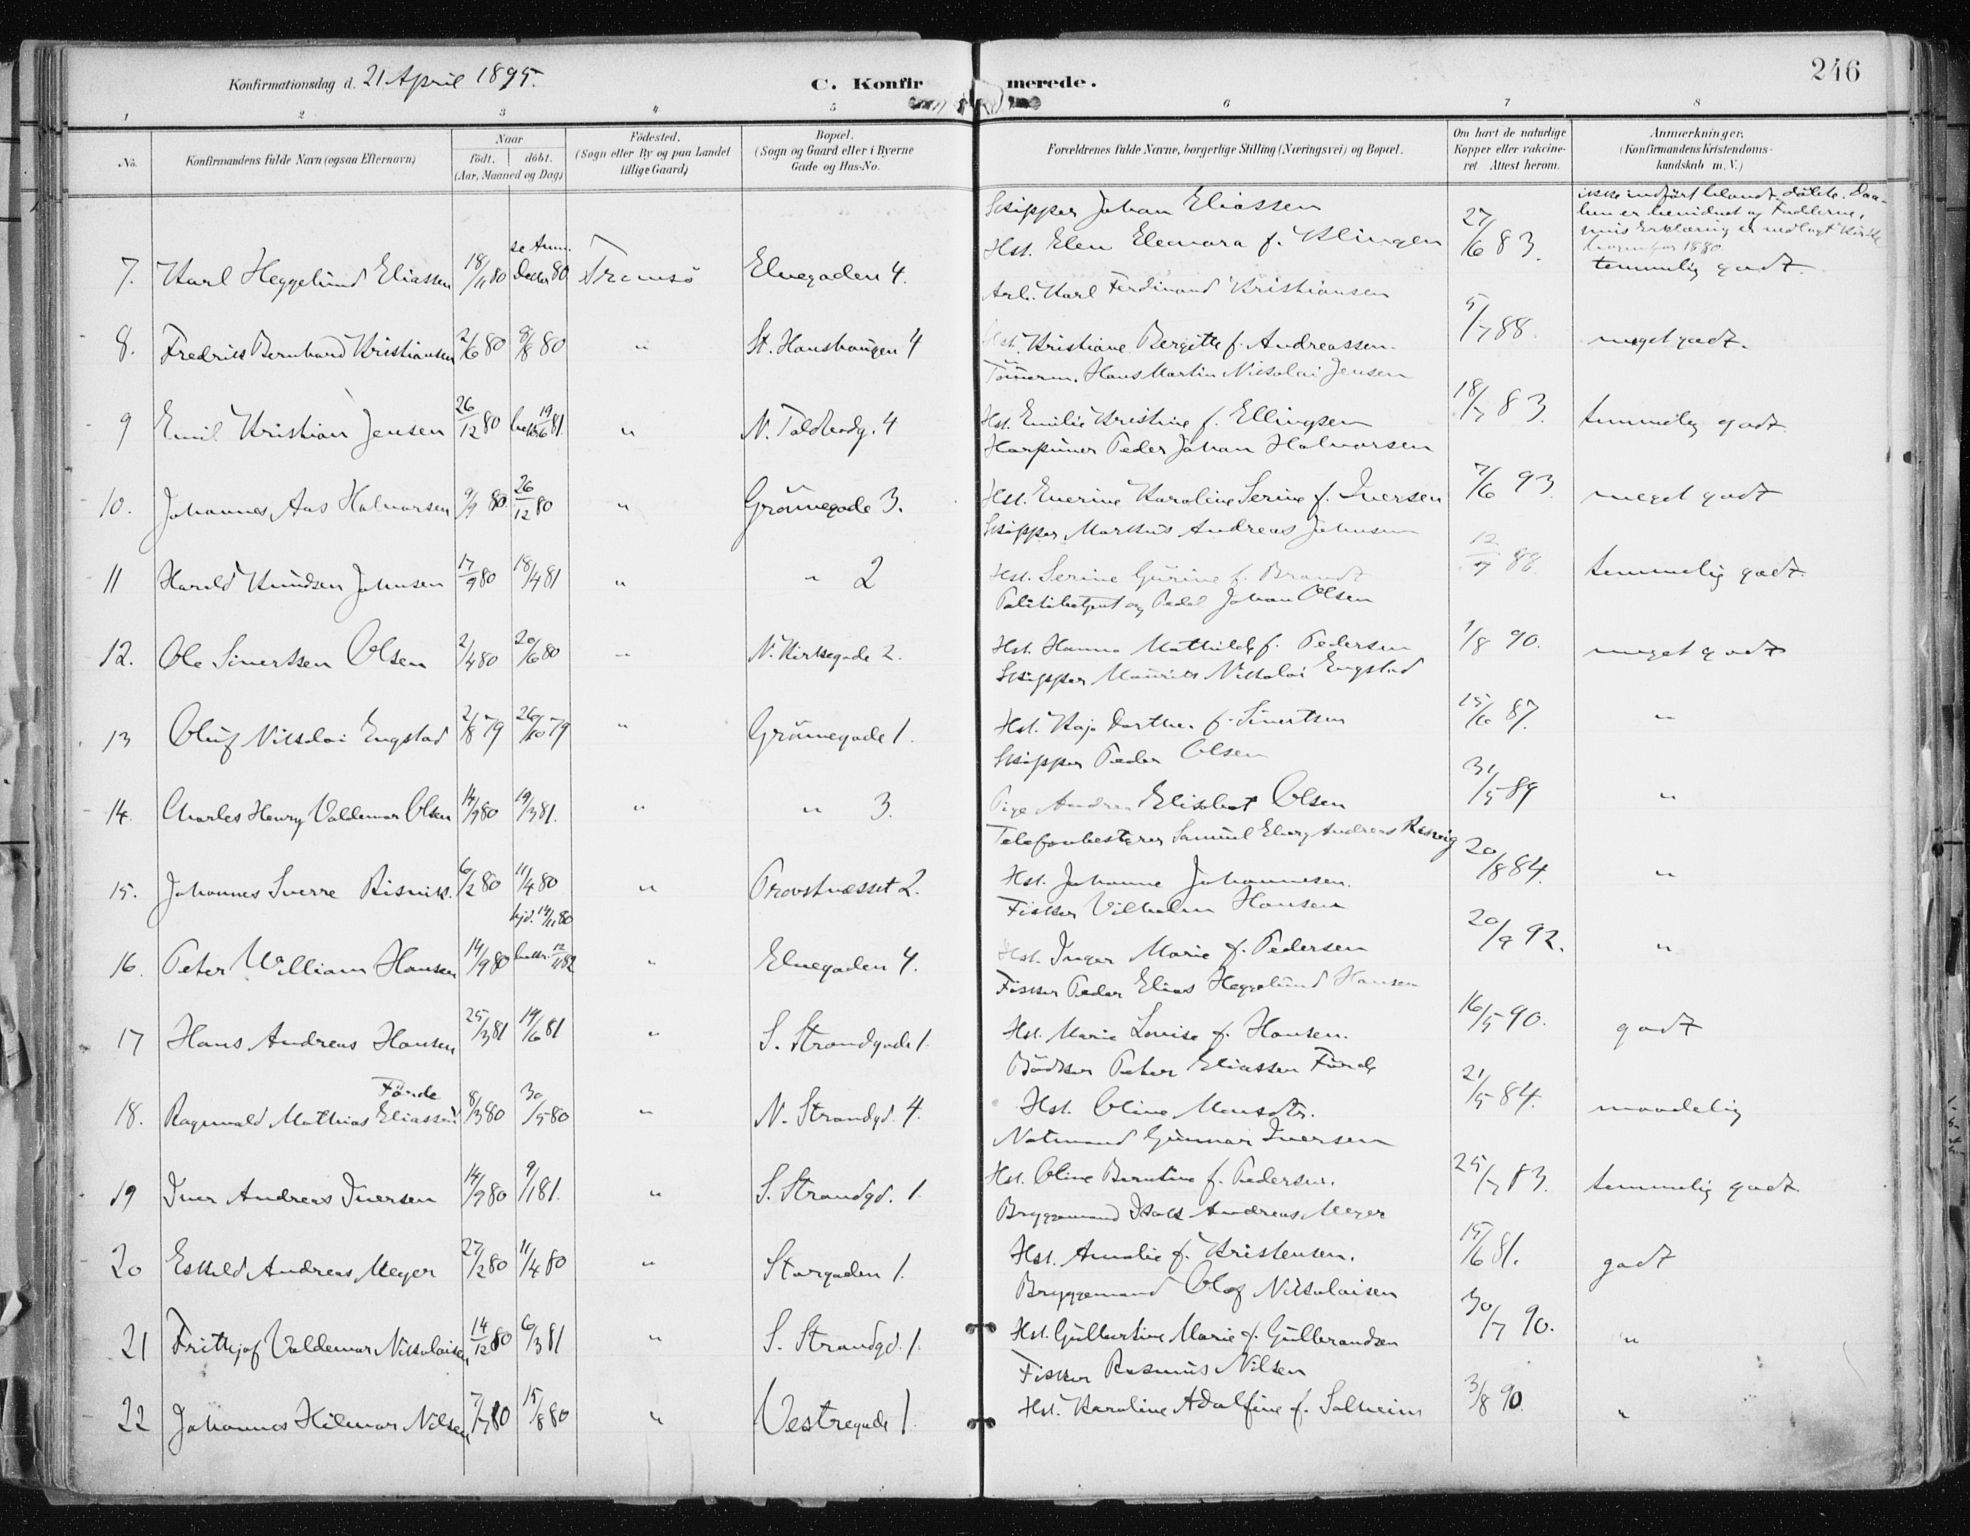 Konfirmationsdag d. 21 April 1895.
C. Konfirmerede.
246
1 2 3 4 5 6 7 8
No.
Konfirmandens fulde Navn (ogsaa Efternavn)
Naar
födt. döbt.
(Aar, Maaned og Dag)
Födested.
(Sogn eller By og paa Landet
tillige Gaard)
Bopæl.
(Sogn og Gaard eller i Byerne
Gade og Hus-No.
Forældrenes fulde Navne, borgerlige Stilling (Næringsvei) og Bopæl.
Om havt de naturlige
Kopper eller vakcine-
ret Attest herom.
Anmærkninger.
(Konfirmandens Kristendoms-
kundskab m. V.)
Skipper Johan Eliassen
ikke indført blandt døbte. Daa-
ben er bevidnet af Fadderne,
7. Karl Heggelund Eliassen 18/11 80 se Anm. Decbr 80 Tromsö Elvegaden 4. Hst. Elen Eleonora f. Klingen 27/6 83. temmelig godt.
Arb. Karl Ferdinand Kristiansen
8. Fredrik Bernhard Kristiansen 2/6 80 8/8 80 " St. Hanshaugen 4 Hst. Kristiane Bergitte f. Andreassen. 5/7 88. meget godt.
Tömerm. Hans Martin Nikolai Jensen
9 Emil Kristian Jensen 26/12 80 19/6 81 " N. Toldbodg. 4 Hst. Emilie Kristine f. Ellingsen 18/7 83 temmelig godt.
Harpuner Peder Johan Halvorsen
10. Johannes Aas Halvorsen 9/9 80. 26/12 80 " Grönnegade 3. Hst. Everine Karoline Serine f. Iversen 7/6 93 meget godt
Skipper Markus Andreas Johnsen
11 Harald Knudsen Johnsen 17/9 80 18/4 81 " " 2 Hst. Serine Gurine f. Brandt 12/7 88. temmelig godt.
Politibetjent og Pedel Johan Olsen
12. Ole Sivertsen Olsen 2/4 80 20/6 80 " N. Kirkegade 2. Hst. Hanna Mathilde f. Pedersen 1/8 90. meget godt
Skipper Mauritz Nikolai Engstad
13 Oluf Nikolai Engstad 2/8 79 26/10 79 " Grönnegade 1. Hst. Kaja Dorthea f. Sivertsen 15/6 87. "
Skipper Peder Olsen
14. Charles Henry Valdemar Olsen 14/9 80 19/3 81. " " 3. Pige Andrea Elisabet Olsen 31/5 89 "
Telefonbestyrer Samuel Eberg Andreas Resvig
15. Johannes Sverre Risvik. 6/2 80 11/4 80 " Provstnæsset 2. Hst. Johanne Johannesen. 20/8 84. "
Fisker Vilhelm Hansen
16. Peter William Hansen 14/9 80 hjd. 14/11 80 bekr. 12/11 82 " Elvegaden 4. Hst. Inger Marie f. Pedersen 20/9 92. "
Fisker Peder Elias Heggelund Hansen
17 Hans Andreas Hansen 25/3 81 19/6 81 " S. Strandgade 1. Hst. Marie Louise f. Hansen. 16/5 90. godt
Bödker Peter Eliassen Förde
18. Ragnvald Mathias Eliassen Förde 8/3 80 30/5 80 " N. Strandgd. 4. Hst. Oline Monsdtr. 21/5 84. maadelig
Notmand Gunnar Iversen
19 Iver Andreas Iversen 14/9 80 9/1 81. " S. Strandgd. 1. Hst. Oline Berntine f. Pedersen. 25/7 83. temmelig godt
Bryggemand Isak Andreas Meyer
20 Eskild Andreas Meyer 27/2 80 11/4 80 " Storgaden 1. Hst. Amalie f. Kristensen. 15/6 81. godt
Bryggemand Olaf Nikolaisen
21 Frithjof Valdemar Nikolaisen 14/12 80 6/3 81 " S. Strandgd. 1. Hst. Gulbertine Marie f. Gulbrandsen 30/7 90. "
Fisker Rasmus Nilsen
22 Johannes Hilmar Nilsen 7/7 80 15/8 80 " Vestregade 1. Hst. Karoline Adolfine f. Solheim 3/8 90. "